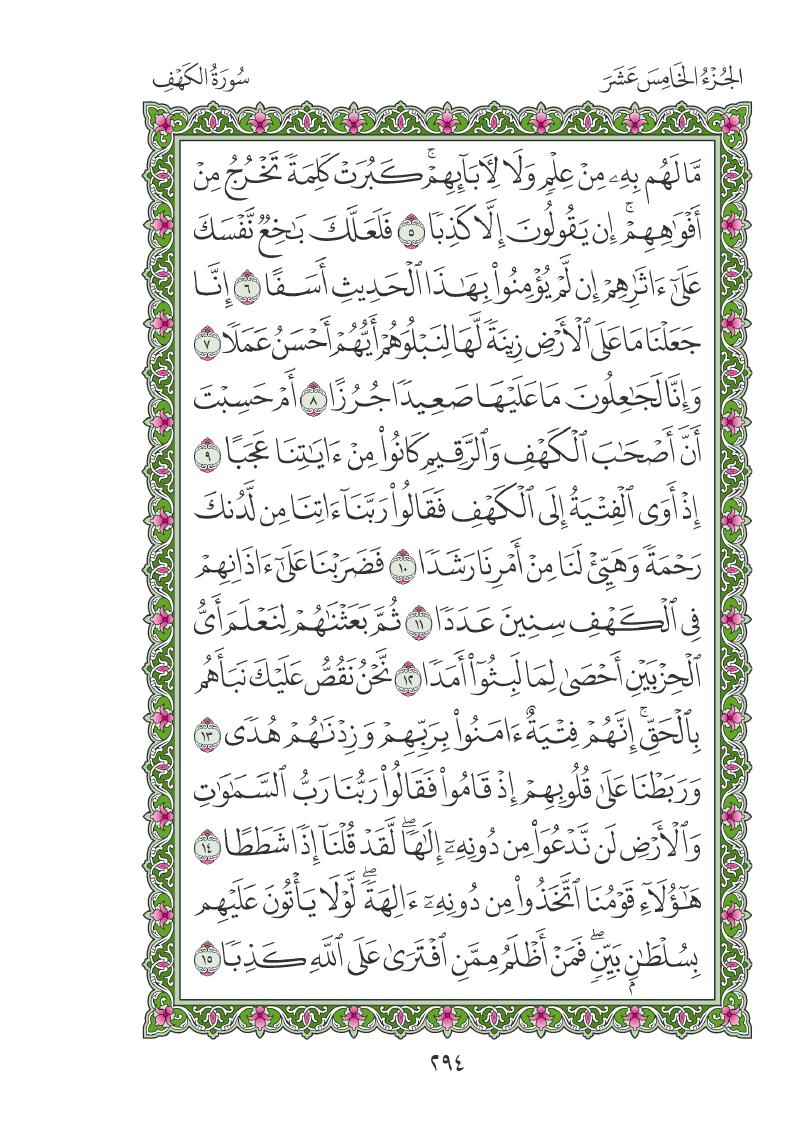 الجُزْءُ الخَامِسَ عَشَرَ
سُورَةُ الكَهْفِ
مَّا لَهُم بِهِۦ مِنْ عِلْمٍ وَلَا لِأٓبَآئِهِمْ ۚ كَبُرَتْ كَلِمَةً تَخْرُجُ مِنْ
أَفْوَٰهِهِمْ ۚ إِن يَقُولُونَ إِلَّا كَذِبًا ٥ فَلَعَلَّكَ بَٰخِعٌ نَّفْسَكَ
عَلَىٰٓ ءَاثَٰرِهِمْ إِن لَّمْ يُؤْمِنُوا۟ بِهَٰذَا ٱلْحَدِيثِ أَسَفًا ٦ إِنَّا
جَعَلْنَا مَا عَلَى ٱلْأَرْضِ زِينَةً لَّهَا لِنَبْلُوَهُمْ أَيُّهُمْ أَحْسَنُ عَمَلًا ٧
وَإِنَّا لَجَٰعِلُونَ مَا عَلَيْهَا صَعِيدًا جُرُزًا ٨ أَمْ حَسِبْتَ
أَنَّ أَصْحَٰبَ ٱلْكَهْفِ وَٱلرَّقِيمِ كَانُوا۟ مِنْ ءَايَٰتِنَا عَجَبًا ٩
إِذْ أَوَى ٱلْفِتْيَةُ إِلَى ٱلْكَهْفِ فَقَالُوا۟ رَبَّنَآ ءَاتِنَا مِن لَّدُنكَ
رَحْمَةً وَهَيِّئْ لَنَا مِنْ أَمْرِنَا رَشَدًا ١٠ فَضَرَبْنَا عَلَىٰٓ ءَاذَانِهِمْ
فِى ٱلْكَهْفِ سِنِينَ عَدَدًا ١١ ثُمَّ بَعَثْنَٰهُمْ لِنَعْلَمَ أَىُّ
ٱلْحِزْبَيْنِ أَحْصَىٰ لِمَا لَبِثُوٓا۟ أَمَدًا ١٢ نَّحْنُ نَقُصُّ عَلَيْكَ نَبَأَهُم
بِٱلْحَقِّ ۚ إِنَّهُمْ فِتْيَةٌ ءَامَنُوا۟ بِرَبِّهِمْ وَزِدْنَٰهُمْ هُدًى ١٣
وَرَبَطْنَا عَلَىٰ قُلُوبِهِمْ إِذْ قَامُوا۟ فَقَالُوا۟ رَبُّنَا رَبُّ ٱلسَّمَٰوَٰتِ
وَٱلْأَرْضِ لَن نَّدْعُوَا۟ مِن دُونِهِۦٓ إِلَٰهًا ۖ لَّقَدْ قُلْنَآ إِذًا شَطَطًا ١٤
هَٰٓؤُلَآءِ قَوْمُنَا ٱتَّخَذُوا۟ مِن دُونِهِۦٓ ءَالِهَةً ۖ لَّوْلَا يَأْتُونَ عَلَيْهِم
بِسُلْطَٰنٍۭ بَيِّنٍ ۖ فَمَنْ أَظْلَمُ مِمَّنِ ٱفْتَرَىٰ عَلَى ٱللَّهِ كَذِبًا ١٥
٢٩٤